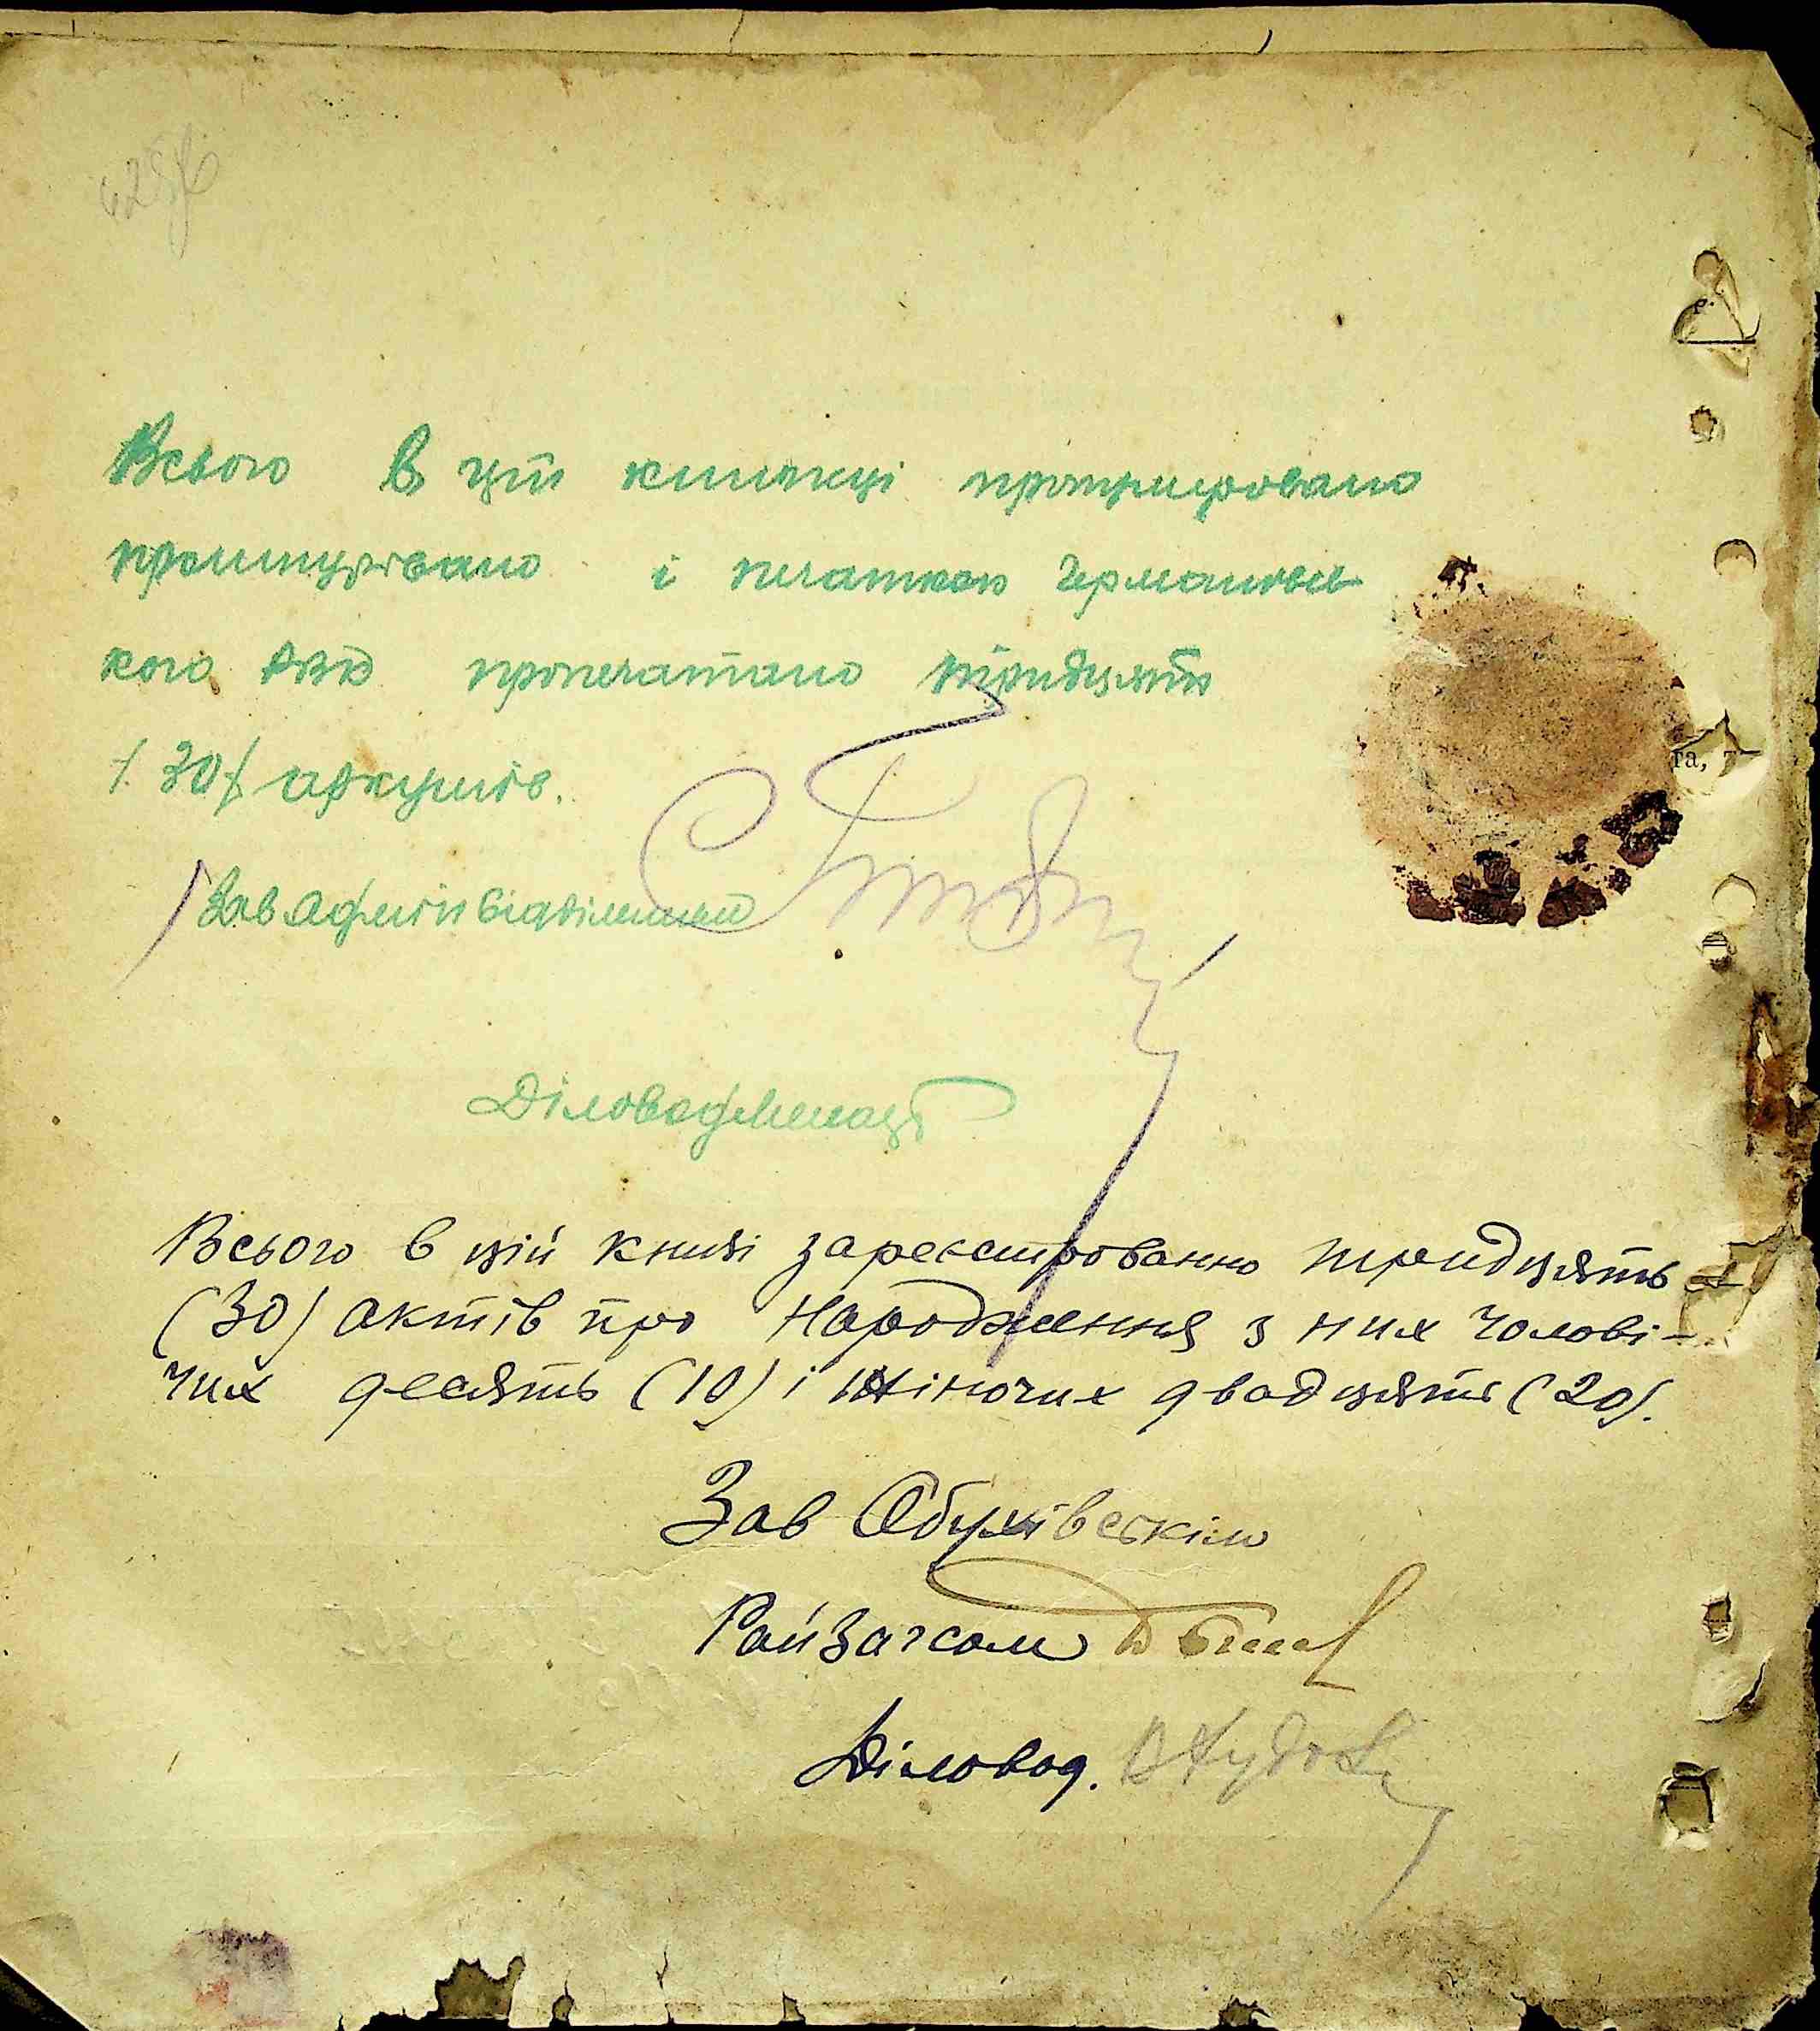 Всього в цій книжці пронумеровано
прошнуровано і печаткою Германовсь-
кого РВК пропечатано тридцять
/. 30/. аркушів.
/Зав. Адмін відділенням
Діловод
Всього в цій книзі зареєстрованно тридцять
(30) актів про Народження з них чолові-
чих десять (10) і жіночих двадцять (20).
Зав Обухівським
Райзагсом
Діловод.
та,